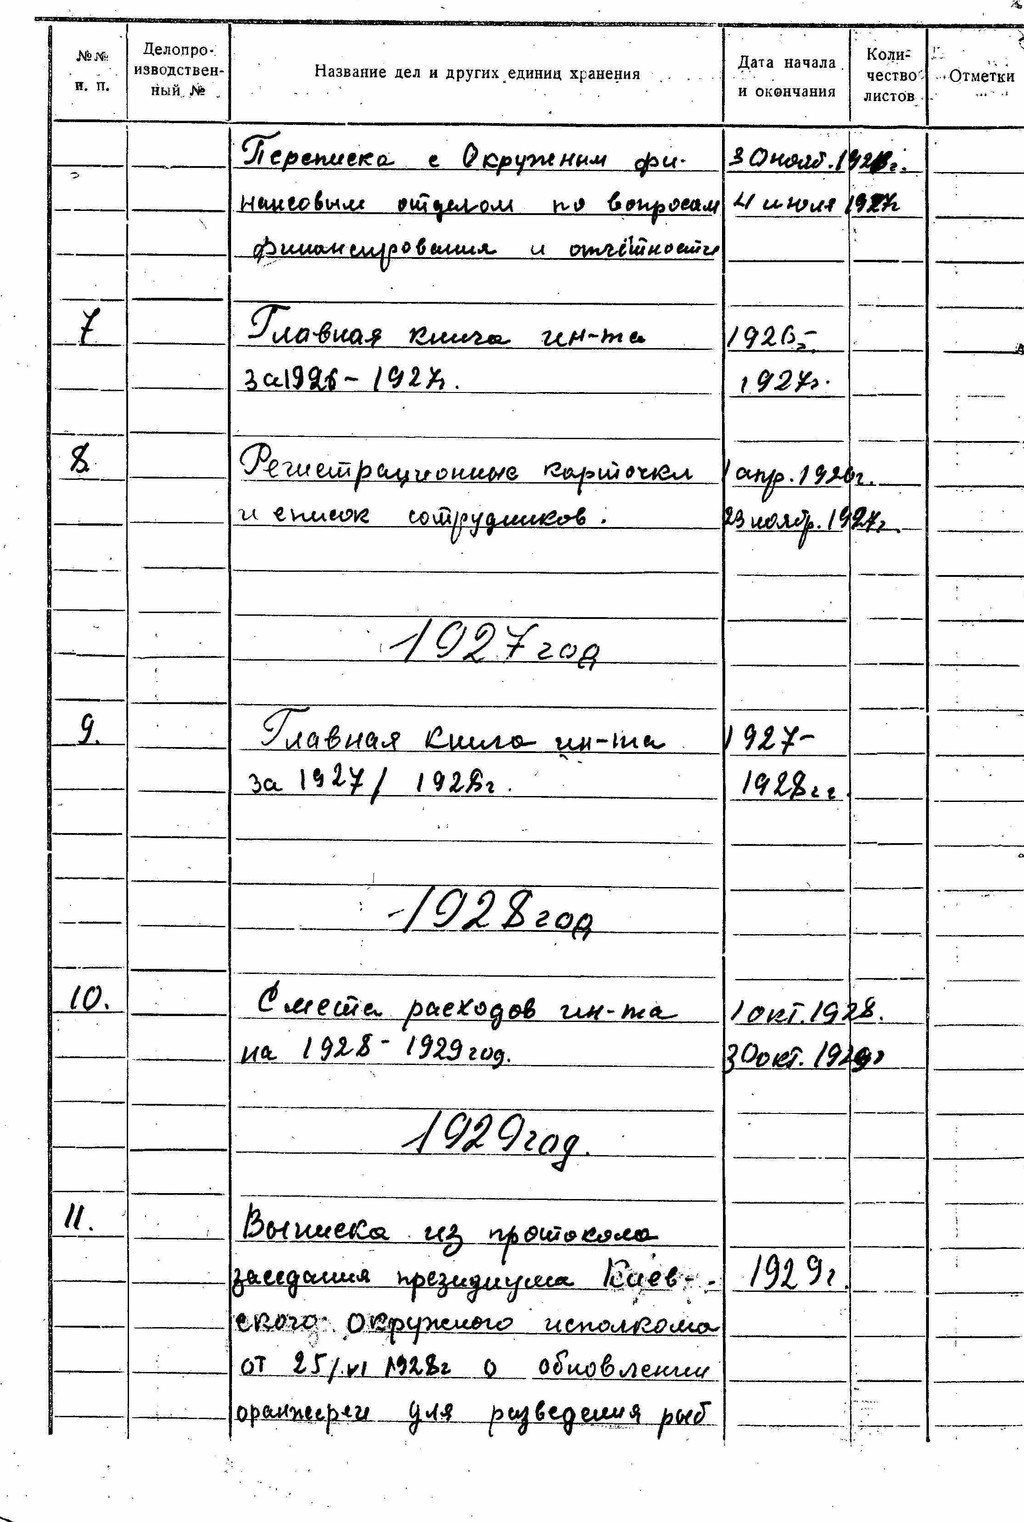 №№ п. п.
Делопроизводственный №
Название дел и других единиц хранения
Дата начала и окончания
Количество листов
Отметки
Переписка с Окружным фи- 30 нояб. 192
нансовым отделом по вопросам 4 июля 1927г
финансирования и отчётности
7 Главная книга ин-та 1926-
за 1926-1927г. 1927г.
8. Регистрационные карточки 1 апр. 1926г.
и список сотрудников. 23 ноябр. 1927г.
1927 год
9. Главная книга ин-та 1927-
за 1927/1928г. 1928гг.
1928 год
10. Смета расходов ин-та 1 окт. 1928.
на 1928-1929 год. 30 окт. 1929г
1929 год.
11. Выписка из протокола
заседания президиума Киев- 1929г.
ского окружного исполкома
от 25/VI 1928г о обновлении
оранжереи для разведения рыб